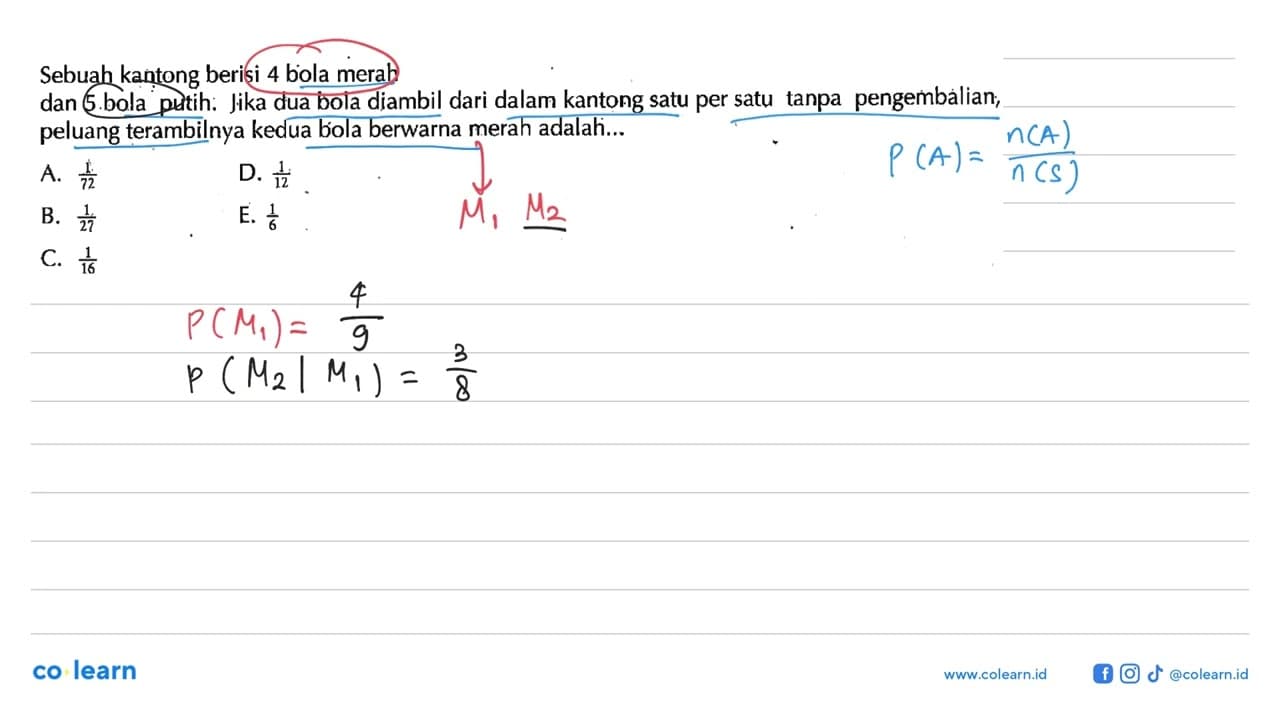 Sebuah kantong berisi 4 bola merah
dan 5 bola putih. Jika dua bola diambil dari dalam kantong satu per satu tanpa pengembalian,
peluang terambilnya kedua bola berwarna merah adalah...
A. 1/72
D. 1/12
B. 1/27
E. 1/6
C. 1/16
P(A) = n(A)/n(S)
M₁ M₂
P(M₁) = 4/9
P(M₂ | M₁) = 3/8
co learn
www.colearn.id
@colearn.id